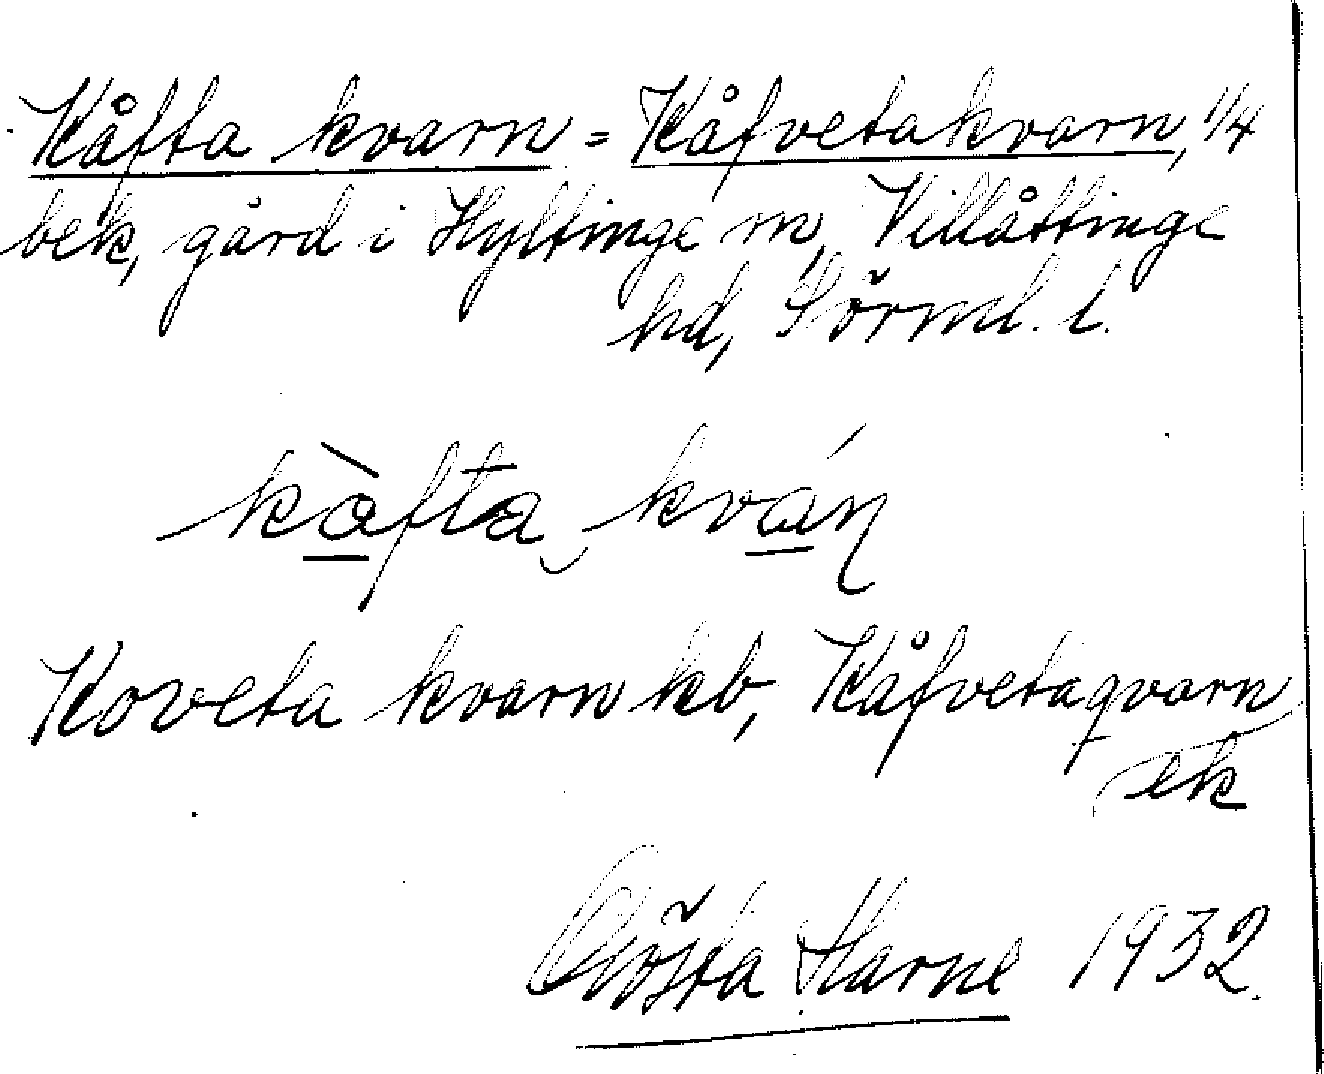 Kåfta kvarn = Kåfvetakvarn, 1/4
bek, gård i Hyltinge sn, Villåttinge
hd, Sörml. l.
kàfta kván
Koveta kvarn kb, Kåfvetaqvarn
ek
Gösta Harne 1932.